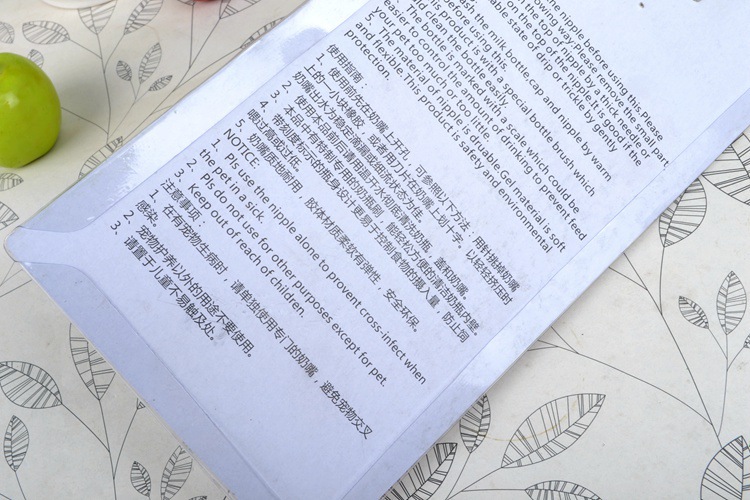 ne nipple before using this.Please
owing way:Please remove the small part,
top of nipple by a thick needle or
on the top of the nipple.It is good if the
able state of drip or trickle by gently
sh the milk bottle,cap and nipple by warm
efore using this.
is product is with a special bottle brush which
ld clean the bottle easily.
The bottle is marked with a scale which could be
easier to control the amount of drinking to prevent feed
your pet too much or too little.
5、The material of nipple is durable.Gel material is soft
and flexible.This product is safety and environmental
protection.
使用指南：
1、使用前先在奶嘴上开孔，可参照以下方法：用针挑掉奶嘴
上的一小块橡胶，或者用刀片在奶嘴上划十字，以轻轻挤压时
奶嘴出水为稳定滴漏或细流状态为佳。
2、使用本品前后请用温开水彻底清洗奶瓶，盖和奶嘴。
3、本品中有特制专用的奶瓶刷，能轻松方便的清洁奶瓶内壁。
4、带刻度标示的瓶身设计更易于控制食物的摄入量，防止饲
喂过高或过低。
5、奶嘴质地耐用，胶体材质柔软有弹性，安全环保。
NOTICE:
1、Pls use the nipple alone to provent cross-infect when
the pet in a sick.
2、Pls do not use for other purposes except for pet.
3、Keep out of reach of children.
注意事项：
1、在有宠物生病时，请单独使用专门的奶嘴，避免宠物交叉
感染。
2、宠物护养以外的用途不要使用。
3、请置于儿童不易触及处。